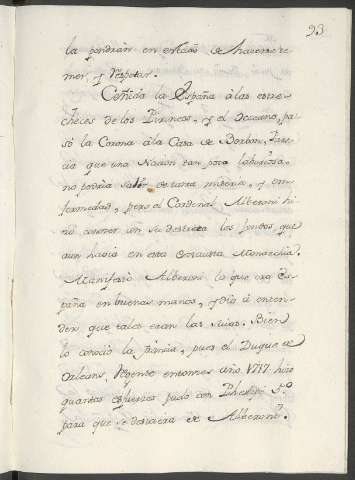 93
la pondràn en estado de hacerse te-
mer, y respetar.
Ceñida la España à las estre-
checes de los Pirineos, y el Occeano, pa-
só la Corona à la Casa de Borbon. Pare-
cia que una Nacion tan poco laboriosa,
no podria salir de tanta miseria, y en-
fermedad, pero el Cardenal Alberoni hi-
zo conocer en su destreza los fondos que
aun havia en esta exausta Monarchia.
Manifestó Alberoni lo que era Es-
paña en buenas manos, y diò à enten-
der que tales eran las suias. Bien
lo conoció la Francia, pues el Duque de
Orleans, Regente entonces año 1717. hizo
quantos esfuerzos pudo con Phelipe 5.º
para que se deshiciera de Alberoni.